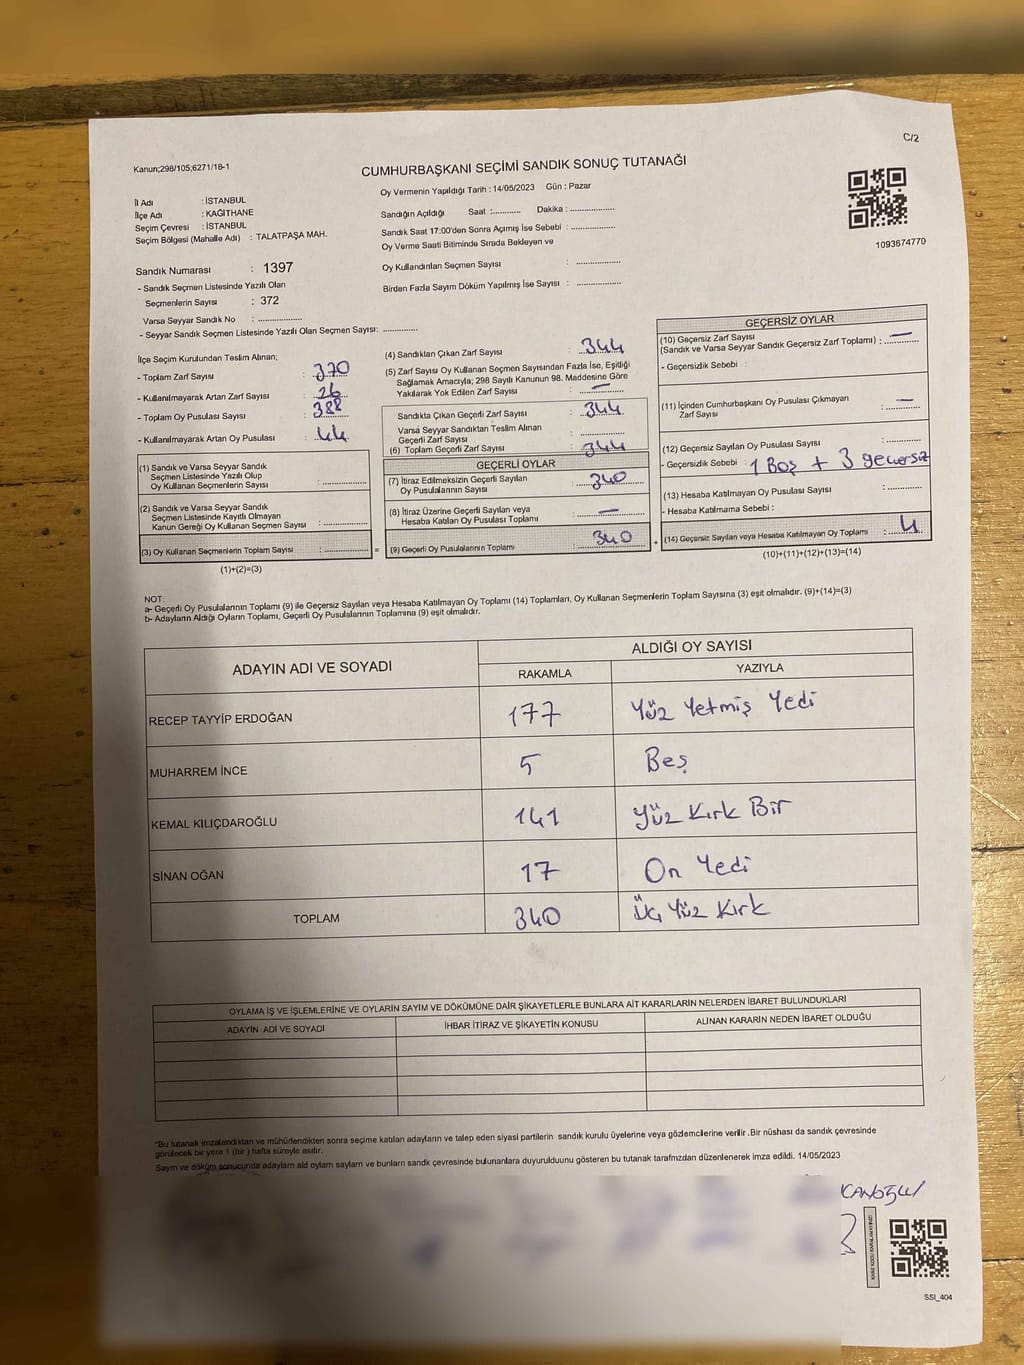 C/2
Kanun;298/105;6271/18-1
CUMHURBAŞKANI SEÇİMİ SANDIK SONUÇ TUTANAĞI
İl Adı : İSTANBUL
İlçe Adı : KAĞITHANE
Seçim Çevresi : İSTANBUL
Seçim Bölgesi (Mahalle Adı) : TALATPAŞA MAH.
Oy Vermenin Yapıldığı Tarih : 14/05/2023 Gün : Pazar
Sandığın Açıldığı Saat :............ Dakika : ..................
Sandık Saat 17:00'den Sonra Açımış İse Sebebi : ..................
Oy Verme Saati Bitiminde Sırada Bekleyen ve
Oy Kullandırılan Seçmen Sayısı : ..................
Birden Fazla Sayım Döküm Yapılmış İse Sayısı : ..................
1093674770
Sandık Numarası : 1397
- Sandık Seçmen Listesinde Yazılı Olan
Seçmenlerin Sayısı : 372
Varsa Seyyar Sandık No : ..................
- Seyyar Sandık Seçmen Listesinde Yazılı Olan Seçmen Sayısı: ..............
İlçe Seçim Kurulundan Teslim Alınan;
- Toplam Zarf Sayısı : 370
- Kullanılmayarak Artan Zarf Sayısı : 26
- Toplam Oy Pusulası Sayısı : 388
- Kullanılmayarak Artan Oy Pusulası : 44
(1) Sandık ve Varsa Seyyar Sandık
Seçmen Listesinde Yazılı Olup
Oy Kullanan Seçmenlerin Sayısı : ..................
(2) Sandık ve Varsa Seyyar Sandık
Seçmen Listesinde Kayıtlı Olmayan
Kanun Gereği Oy Kullanan Seçmen Sayısı : ..................
(3) Oy Kullanan Seçmenlerin Toplam Sayısı : .................. =
(1)+(2)=(3)
(4) Sandıktan Çıkan Zarf Sayısı : 344
(5) Zarf Sayısı Oy Kullanan Seçmen Sayısından Fazla İse, Eşitliği
Sağlamak Amacıyla; 298 Sayılı Kanunun 98. Maddesine Göre
Yakılarak Yok Edilen Zarf Sayısı : —
Sandıkta Çıkan Geçerli Zarf Sayısı : 344
Varsa Seyyar Sandıktan Teslim Alınan
Geçerli Zarf Sayısı : ..................
(6) Toplam Geçerli Zarf Sayısı : 344
GEÇERLİ OYLAR
(7) İtiraz Edilmeksizin Geçerli Sayılan
Oy Pusulalarının Sayısı : 340
(8) İtiraz Üzerine Geçerli Sayılan veya
Hesaba Katılan Oy Pusulası Toplamı : —
(9) Geçerli Oy Pusulalarının Toplamı : 340 +
GEÇERSİZ OYLAR
(10) Geçersiz Zarf Sayısı
(Sandık ve Varsa Seyyar Sandık Geçersiz Zarf Toplamı) : —
- Geçersizlik Sebebi :
(11) İçinden Cumhurbaşkanı Oy Pusulası Çıkmayan
Zarf Sayısı : —
(12) Geçersiz Sayılan Oy Pusulası Sayısı : ............
- Geçersizlik Sebebi : 1 Boş + 3 geçersiz
(13) Hesaba Katılmayan Oy Pusulası Sayısı : ............
- Hesaba Katılmama Sebebi :
(14) Geçersiz Sayılan veya Hesaba Katılmayan Oy Toplamı : 4
(10)+(11)+(12)+(13)=(14)
NOT:
a- Geçerli Oy Pusulalarının Toplamı (9) ile Geçersiz Sayılan veya Hesaba Katılmayan Oy Toplamı (14) Toplamları, Oy Kullanan Seçmenlerin Toplam Sayısına (3) eşit olmalıdır. (9)+(14)=(3)
b- Adayların Aldığı Oyların Toplamı, Geçerli Oy Pusulalarının Toplamına (9) eşit olmalıdır.
ADAYIN ADI VE SOYADI ALDIĞI OY SAYISI
RAKAMLA YAZIYLA
RECEP TAYYİP ERDOĞAN 177 Yüz Yetmiş Yedi
MUHARREM İNCE 5 Beş
KEMAL KILIÇDAROĞLU 141 Yüz Kırk Bir
SİNAN OĞAN 17 On Yedi
TOPLAM 340 Üç Yüz Kırk
OYLAMA İŞ VE İŞLEMLERİNE VE OYLARIN SAYIM VE DÖKÜMÜNE DAİR ŞİKAYETLERLE BUNLARA AİT KARARLARIN NELERDEN İBARET BULUNDUKLARI
ADAYIN ADI VE SOYADI İHBAR İTİRAZ VE ŞİKAYETİN KONUSU ALINAN KARARIN NEDEN İBARET OLDUĞU
*Bu tutanak imzalandıktan ve mühürlendikten sonra seçime katılan adayların ve talep eden siyasi partilerin sandık kurulu üyelerine veya gözlemcilerine verilir .Bir nüshası da sandık çevresinde
görülecek bir yere 1 (bir ) hafta süreyle asılır.
Sayım ve döküm sonucunda adayların ald oyların sayların ve bunların sandk çevresinde bulunanlara duyurulduunu gösteren bu tutanak tarafmzdan düzenlenerek imza edildi. 14/05/2023
SSI_404